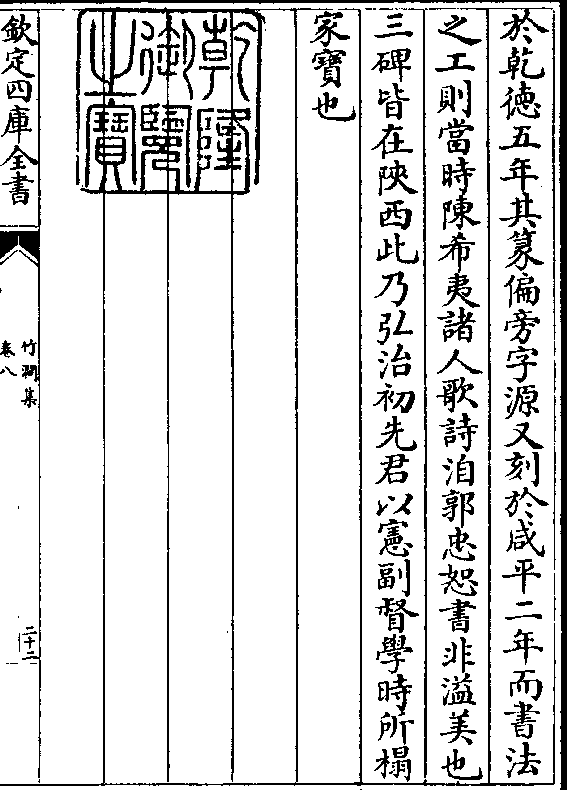 於乾徳五年其篆偏旁字源又刻於咸平二年而書法
之工則當時陳希夷諸人歌詩洎郭忠恕書非溢美也
三碑皆在陜西此乃弘治初先君以憲副督學時所榻
家寶也
乾隆御覽之寶
欽定四庫全書
竹澗集
卷八
二十二